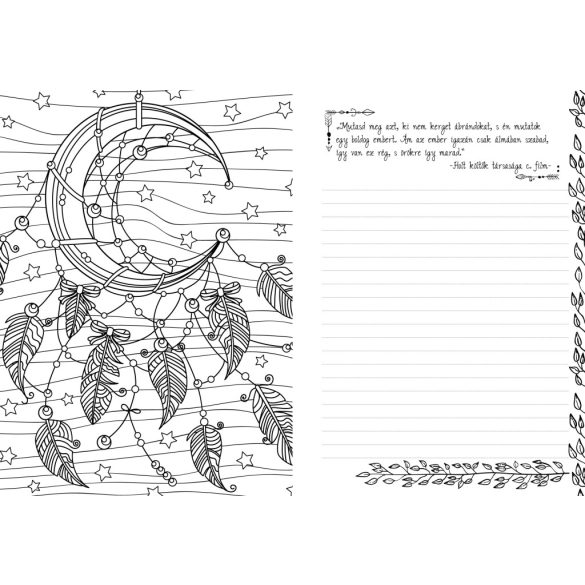 „Mutasd meg azt, ki nem kerget ábrándokat, s én mutatok
egy boldog embert. Ám az ember igazán csak álmában szabad,
így van ez rég, s örökre így marad."
-Holt költők társasága c. film-